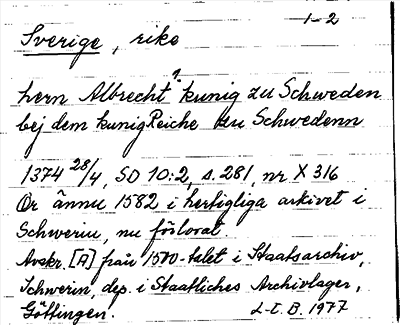 1-2
Sverige, rike
hern Albrecht 1. kunig zu Schweden
bej dem kunig Reiche zu Schwedenn
1374 28/4, SD 10:2, s. 281, nr X 316
Or ännu 1582 i hertigliga arkivet i
Schwerin, nu förlorat
Avskr. [A] från 1500-talet i Staatsarchiv,
Schwerin, dep. i Staatliches Archivlager,
Göttingen. L-E. B. 1977